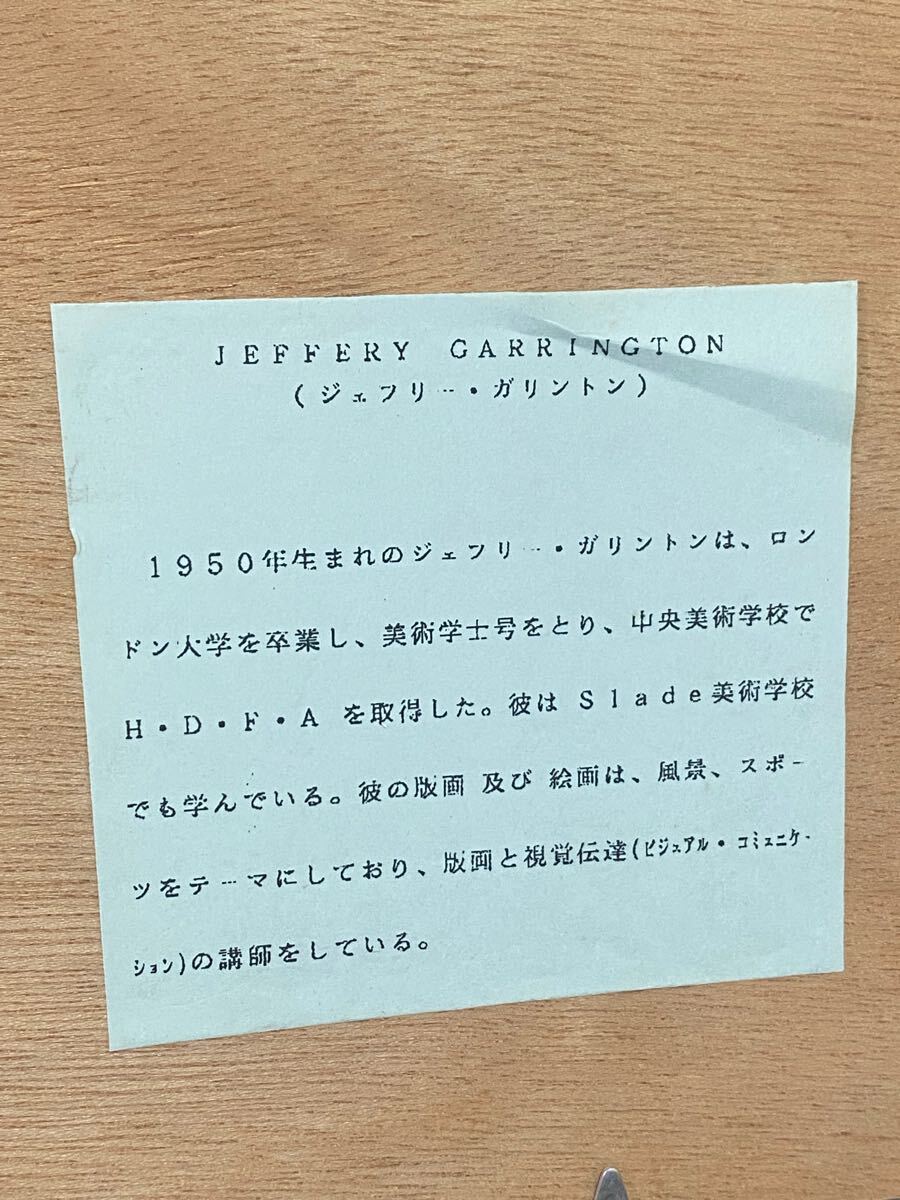 JEFFERY GARRINGTON
(ジェフリー・ガリントン)
1950年生まれのジェフリー・ガリントンは、ロン
ドン大学を卒業し、美術学士号をとり、中央美術学校で
H・D・F・A を取得した。彼は Slade美術学校
でも学んでいる。彼の版画 及び 絵画は、風景、スポー
ツをテーマにしており、版画と視覚伝達(ビジュアル・コミュニケー
ション)の講師をしている。